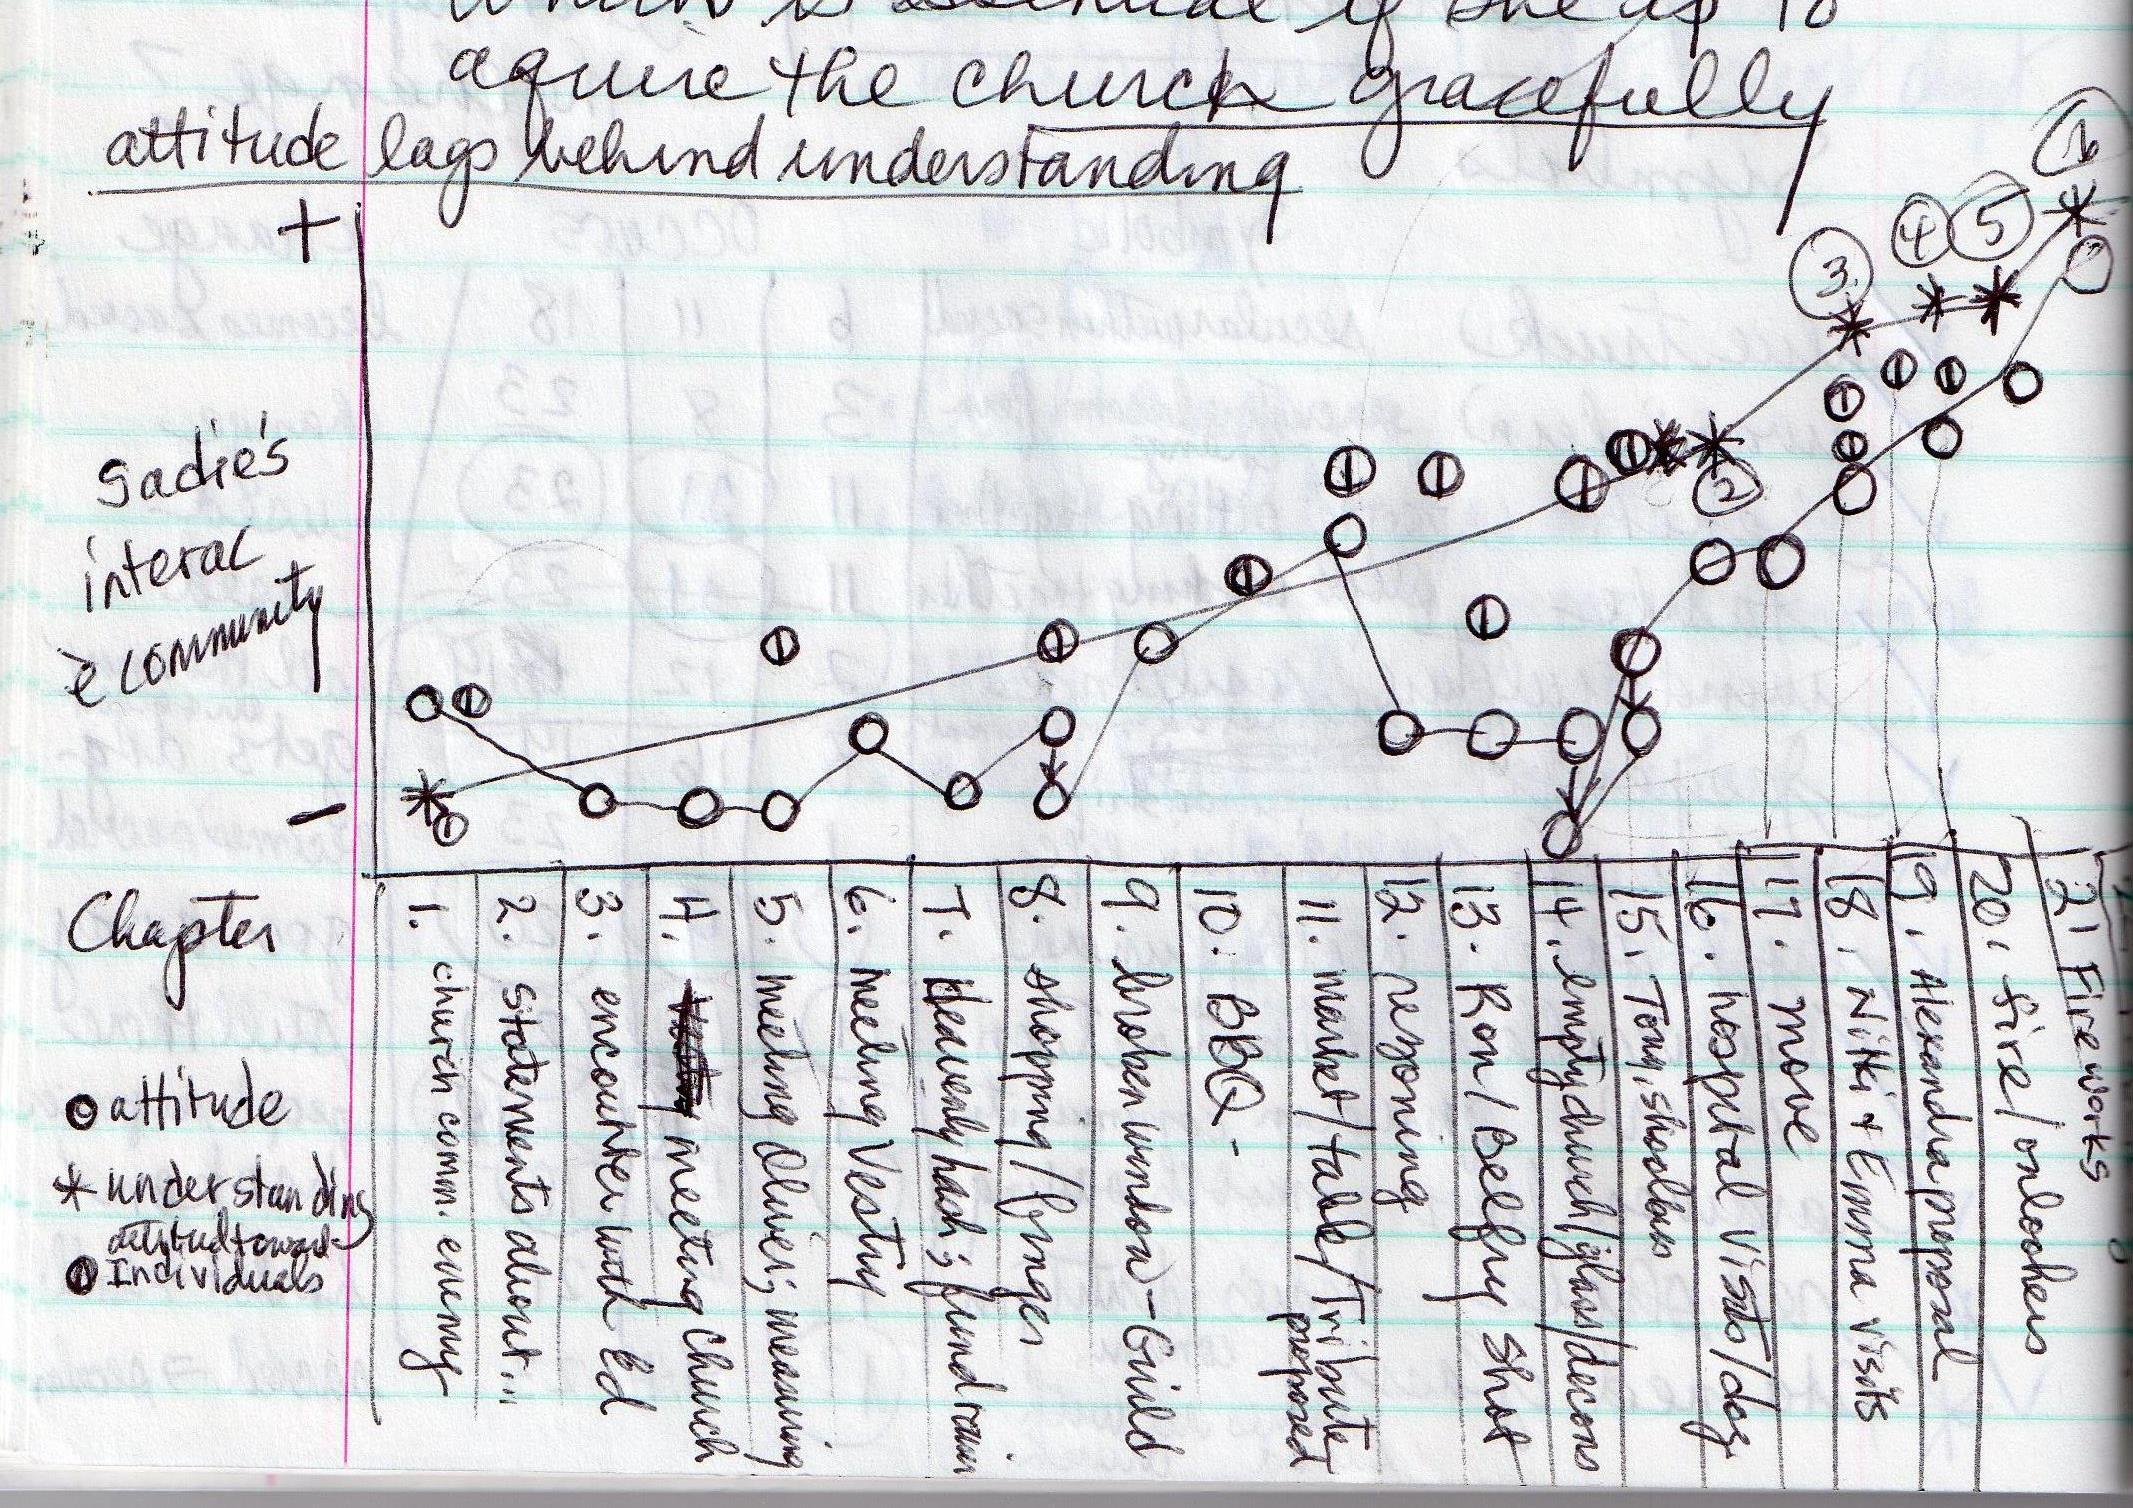 aquire the church gracefully
attitude lags behind understanding
+
Sadie's
interac
c̄ community
-
① ② ③ ④ ⑤
Chapter
1. church comm. evening
2. statements about...
3. encounter with Ed
4. meeting Church
5. meeting Oliver; meaning
6. meeting Vestry
7. Heavenly hash; fund rais
8. shopping/finger
9. broken window - Guild
10. BBQ -
11. market/table/Tribute
proposed
12. rezoning
13. Ron/Belfry shot
14. empty church/glass/decons
15. Tony, shoolbus
16. hospital visits/dog
17. move
18. Nikki + Emma visits
19. Alexandra proposal
20. fire/onlookers
21 Fireworks
o attitude
* understanding
attitud toward
Individuals